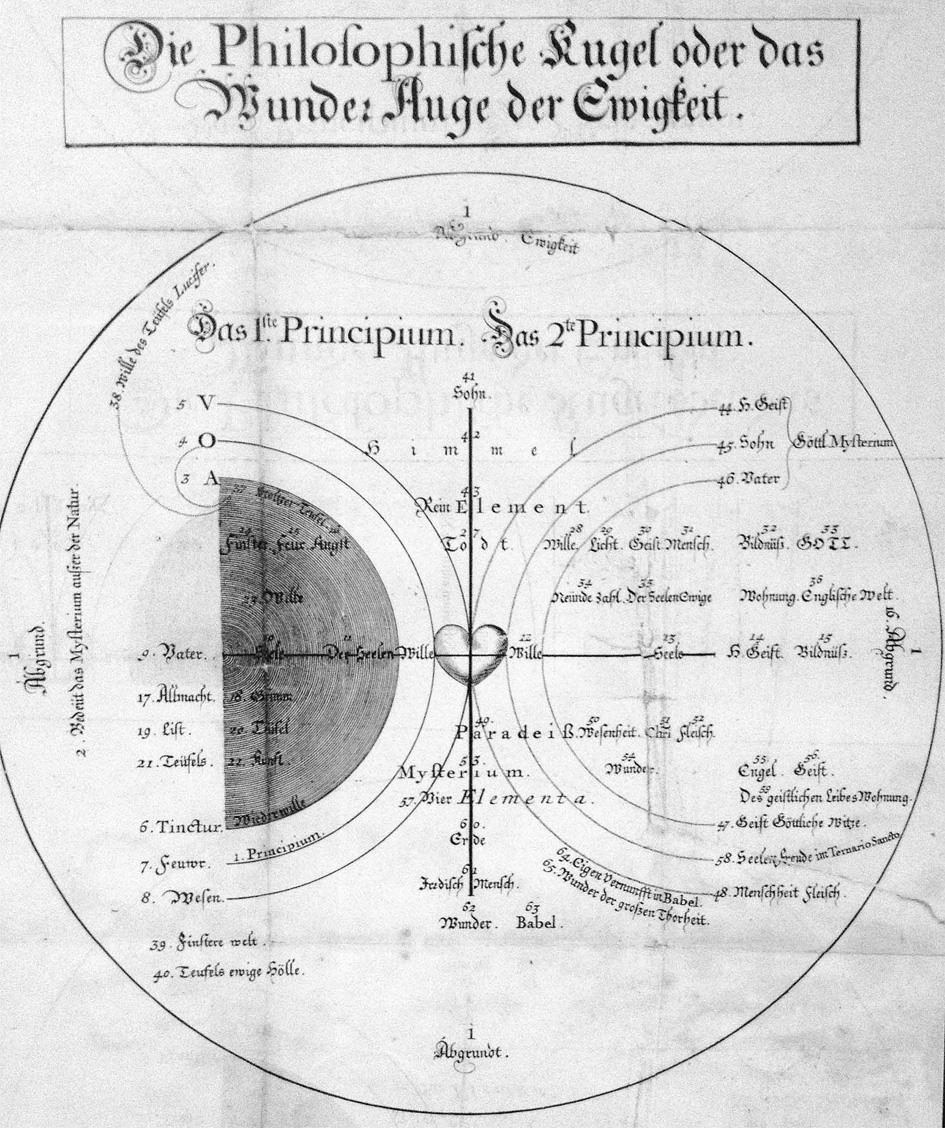 Die Philosophische Kugel oder das
Wunder Auge der Ewigkeit.
1
Abgrund. Ewigkeit
38. Wille des Teüfels Lucifer.
Das 1.ste Principium. Das 2te Principium.
41
Sohn.
5 V
44. H. Geist
4 O
42
H i m m e l
45. Sohn
Göttl. Mysterium
3 A
46. Vater
37.
Teüfel
43
Rein Element.
24 25
Finster Feur Angst
27
Todt.
28 29 30 31 32 33
Wille. Licht. Geist Mensch. Bildnüß. GOTT.
23. Wille
34 35 36
Neünde Zahl. Der Seelen Ewige Wohnung. Englische Welt.
1
Abgrund.
2. Bedeüt das Mysterium außer der Natur.
10 11 12 13 14 15
9. Vater. Seele Der Seelen Wille Wille Seele H. Geist. Bildnüß.
16. Abgrund.
1
17. Allmacht. 18. Grimm
19. List. 20. Teüfel
21. Teüfels. 22. Kunst.
49. 50 51 52
Paradeiß. Wesenheit. Chri Fleisch.
53.
Mysterium.
54
Wunder.
55 56
Engel. Geist.
57. Vier Elementa.
59
Des geistlichen Leibes Wohnung.
6. Tinctur. Wiederwille
60.
Erde
47. Geist Göttliche Witze.
7. Feuwr. 1. Principium.
58. Seelen Ende im Ternario Sancto
61
Irdisch Mensch.
8. Wesen.
48. Menschheit Fleisch.
64. Eigen Vernunfft in Babel.
65. Wunder der großen Thorheit.
62 63
Wunder. Babel.
39. Finstere welt.
40. Teufels ewige Hölle.
1
Abgrundt.